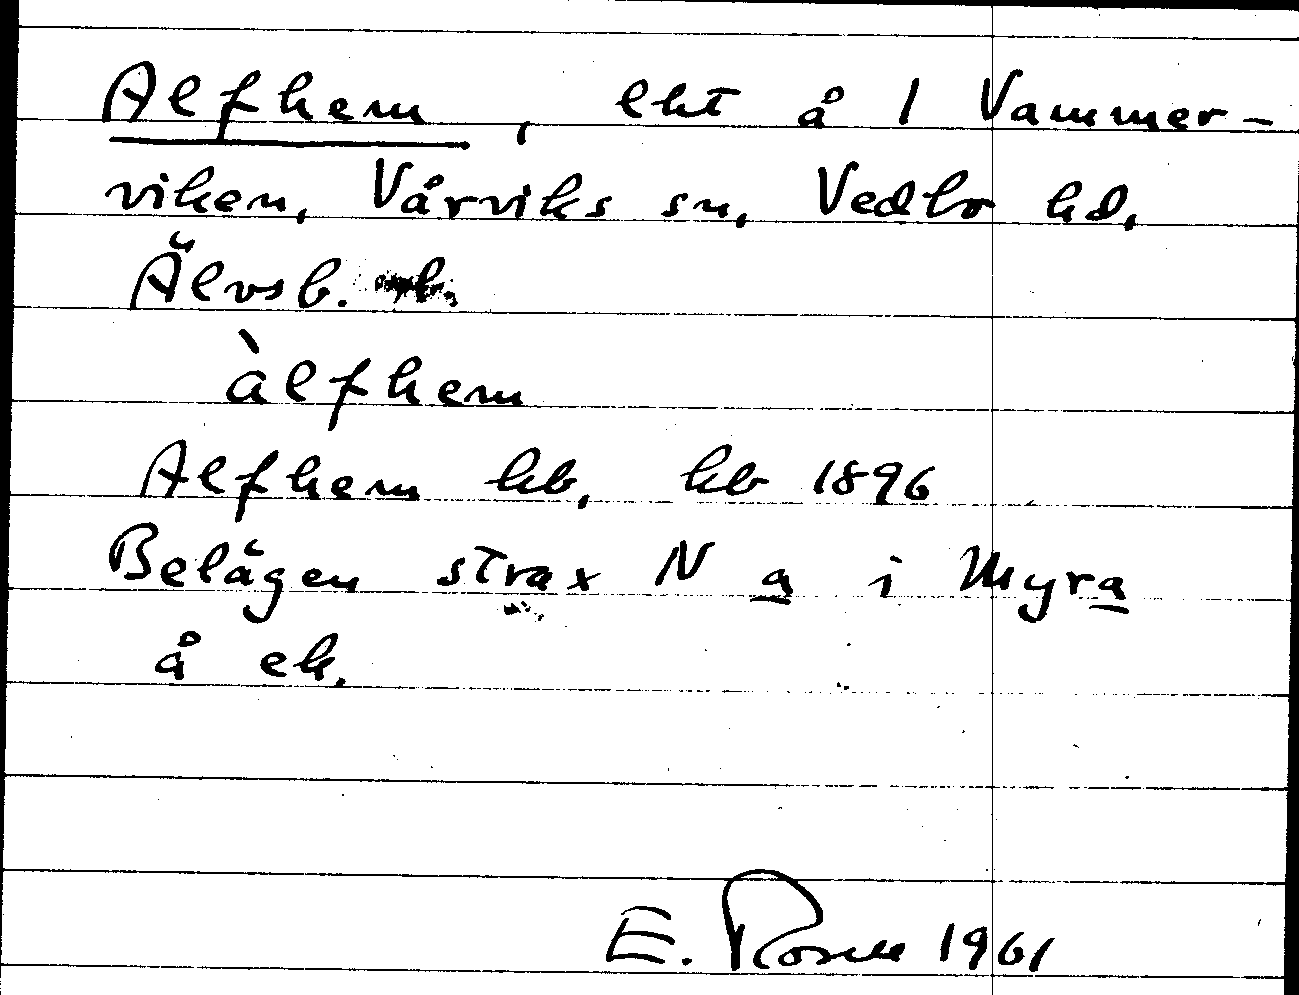 Alfhem, lht å 1 Vammer-
viken, Vårviks sn, Vedbo hd,
Älvsb.
àlfhem
Alfhem hb, kb 1896
Belägen strax N a i Myra
å ek.
E. 1961